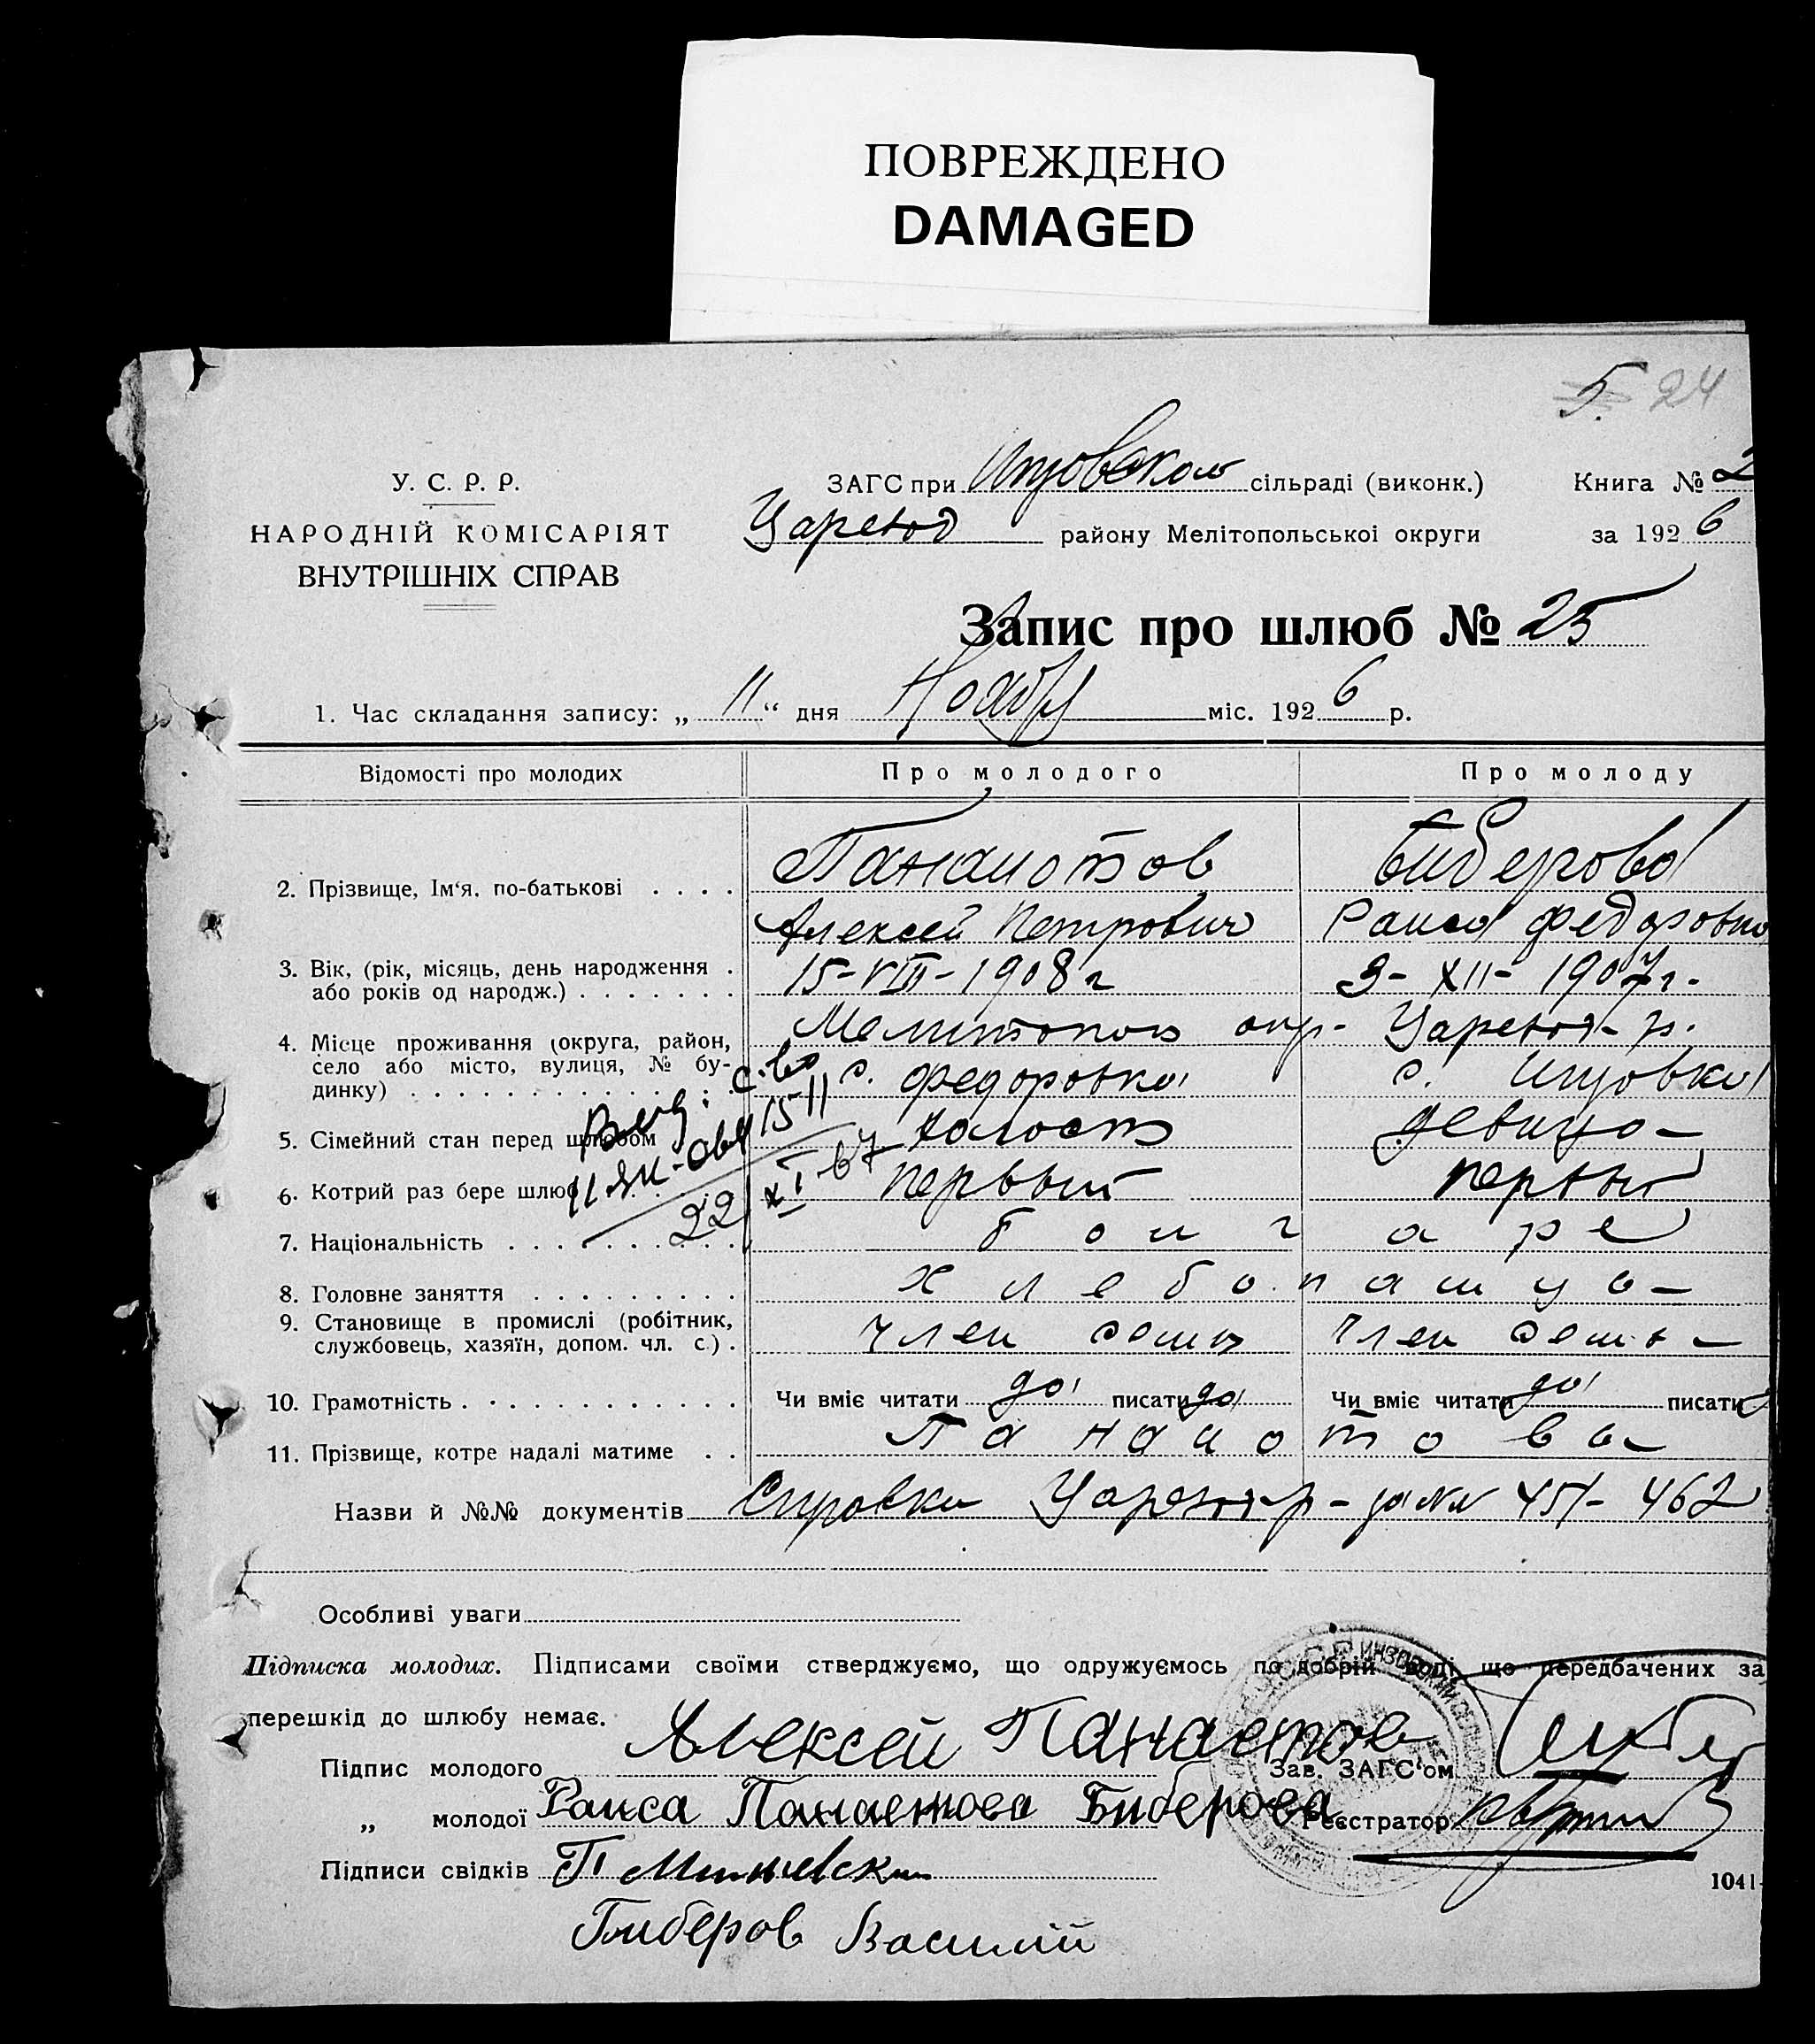 ПОВРЕЖДЕНО
DAMAGED
5. 24
У. С. Р. Р.
НАРОДНІЙ КОМІСАРІЯТ
ВНУТРІШНІХ СПРАВ
ЗАГС при сільраді (виконк.) Книга № 2
Царевод району Мелітопольської округи за 1926
Запис про шлюб № 25
1. Час складання запису: „ 11 “ дня Ноября міс. 1926 р.
Відомості про молодих Про молодого Про молоду
2. Прізвище, Ім‘я, по-батькові . . . . Панаиотов Биберова
Алексей Петрович Раиса Федоровна
3. Вік, (рік, місяць, день народження . 15-VIII-1908 г 9- XII- 1907 г.
або років од народж.) . . . . . . .
4. Місце проживання (округа, район, Мелитопол окр- Царевод- р.
село або місто, вулиця, № бу- с. Федоровка с.
динку) . . . . . . . . . . . . .
5. Сімейний стан перед шлюбом холост девица
6. Котрий раз бере шлюб первый первый
7. Національність . . . . . . . . . . болгаре
8. Головне заняття . . . . . . . . . хлебопашцы
9. Становище в промислі (робітник, член семьи член семьи
службовець, хазяїн, допом. чл. с.) .
10. Грамотність . . . . . . . . . . . . Чи вміє читати да писати да Чи вміє читати да писати
11. Прізвище, котре надалі матиме . . Панаиотова
Назви й №№ документів Справки за №№ 451- 462
Особливі уваги
Підписка молодих. Підписами своїми стверджуємо, що одружуємось по добрій волі, що передбачених за
перешкід до шлюбу немає.
Підпис молодого Алексей Панаетов Зав. ЗАГС‘ом
„ молодої Раиса Панаетова Биберова Реєстратор
Підписи свідків П Миневски
1041-
Биберов Василий